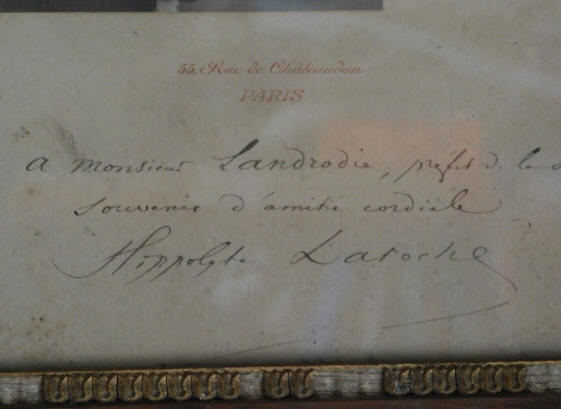 55, Rue de Châteaudun
PARIS
A monsieur Landrodie, préfet de la
souvenir d'amitié cordiale
Hippolyte Laroche